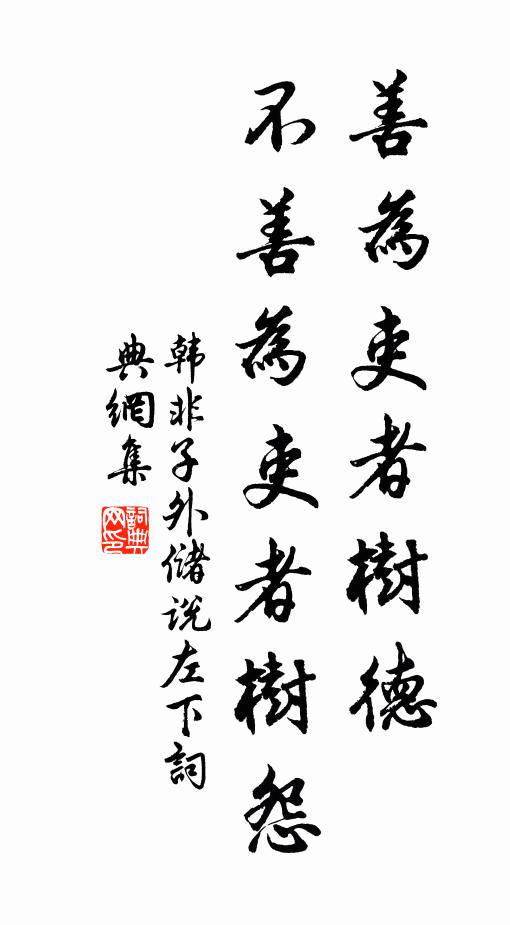 善為吏者樹德
不善為吏者樹怨
韩非子外儲说左下詞
典網集
詞典
网印